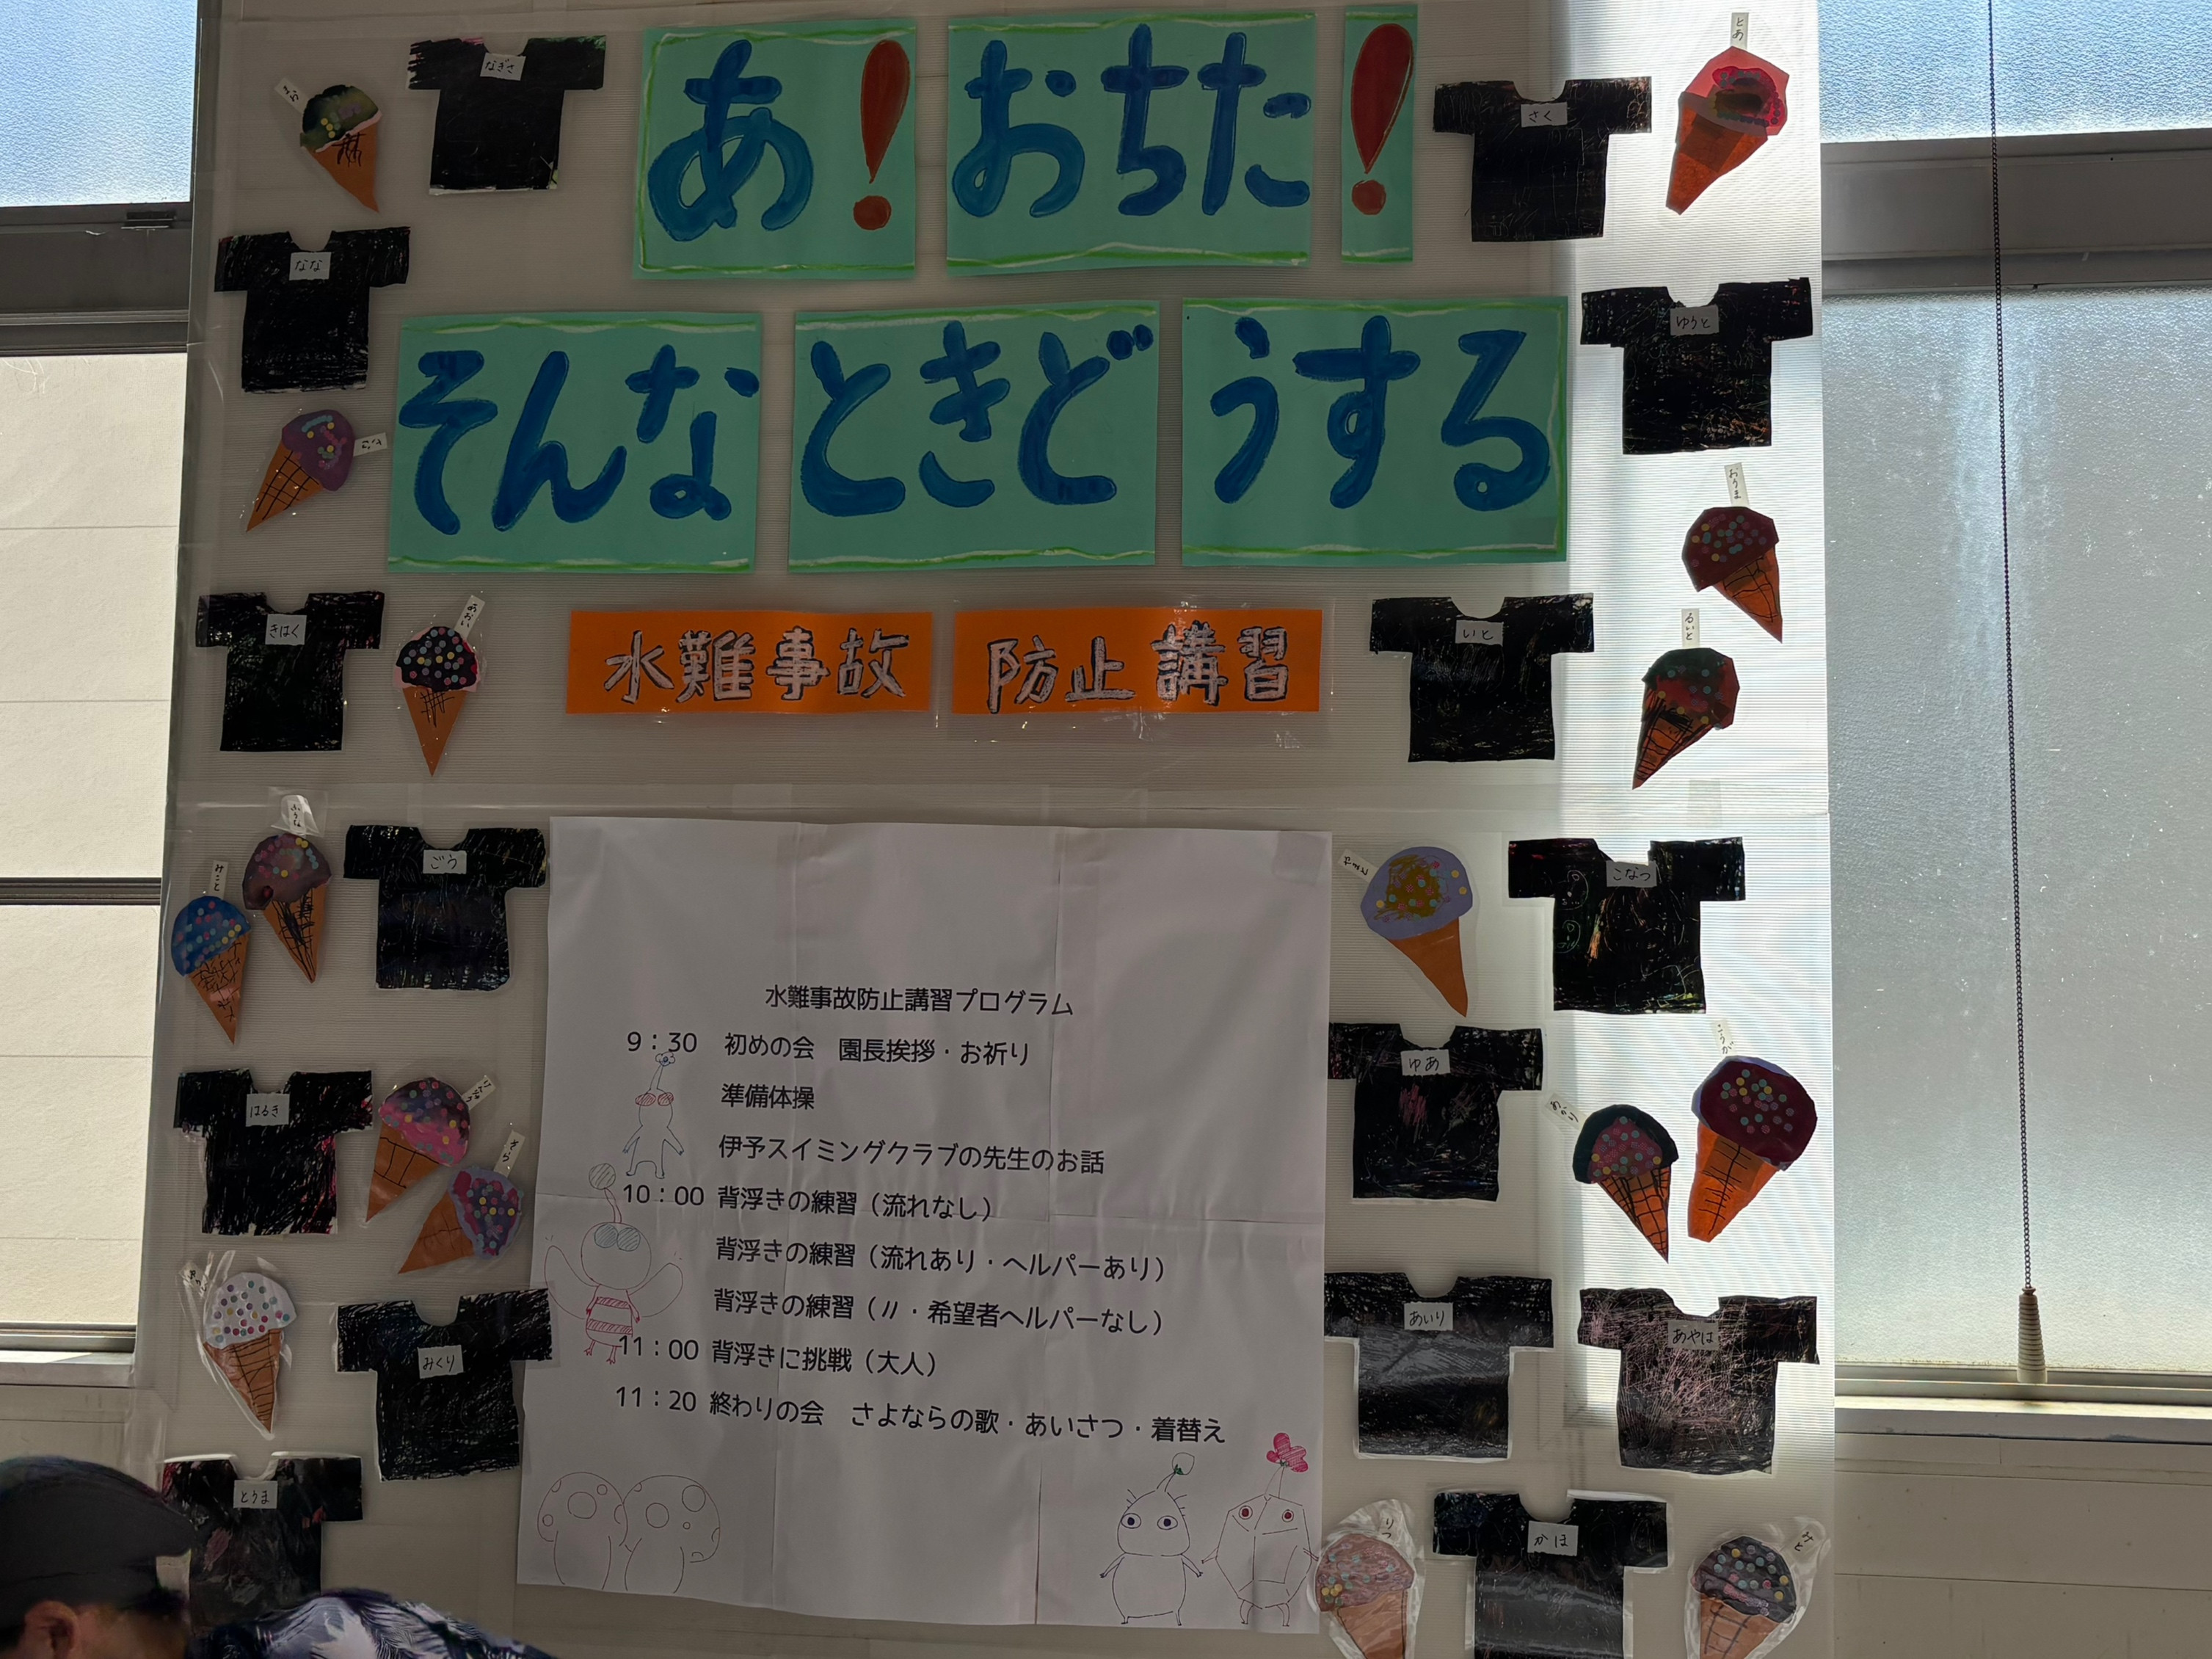 あ！おちた！
そんなときどうする
水難事故 防止講習
水難事故防止講習プログラム
9：30 初めの会 園長挨拶・お祈り
準備体操
伊予スイミングクラブの先生のお話
10：00 背浮きの練習（流れなし）
背浮きの練習（流れあり・ヘルパーあり）
背浮きの練習（〃・希望者ヘルパーなし）
11：00 背浮きに挑戦（大人）
11：20 終わりの会 さよならの歌・あいさつ・着替え
なぎさ
なな
きはく
あおい
みこと
ごう
はるき
さくら
みくり
とうま
とあ
さく
ゆうと
おうま
るいと
いと
やまと
こなつ
こうが
あかり
ゆあ
あいり
あやは
りつ
かほ